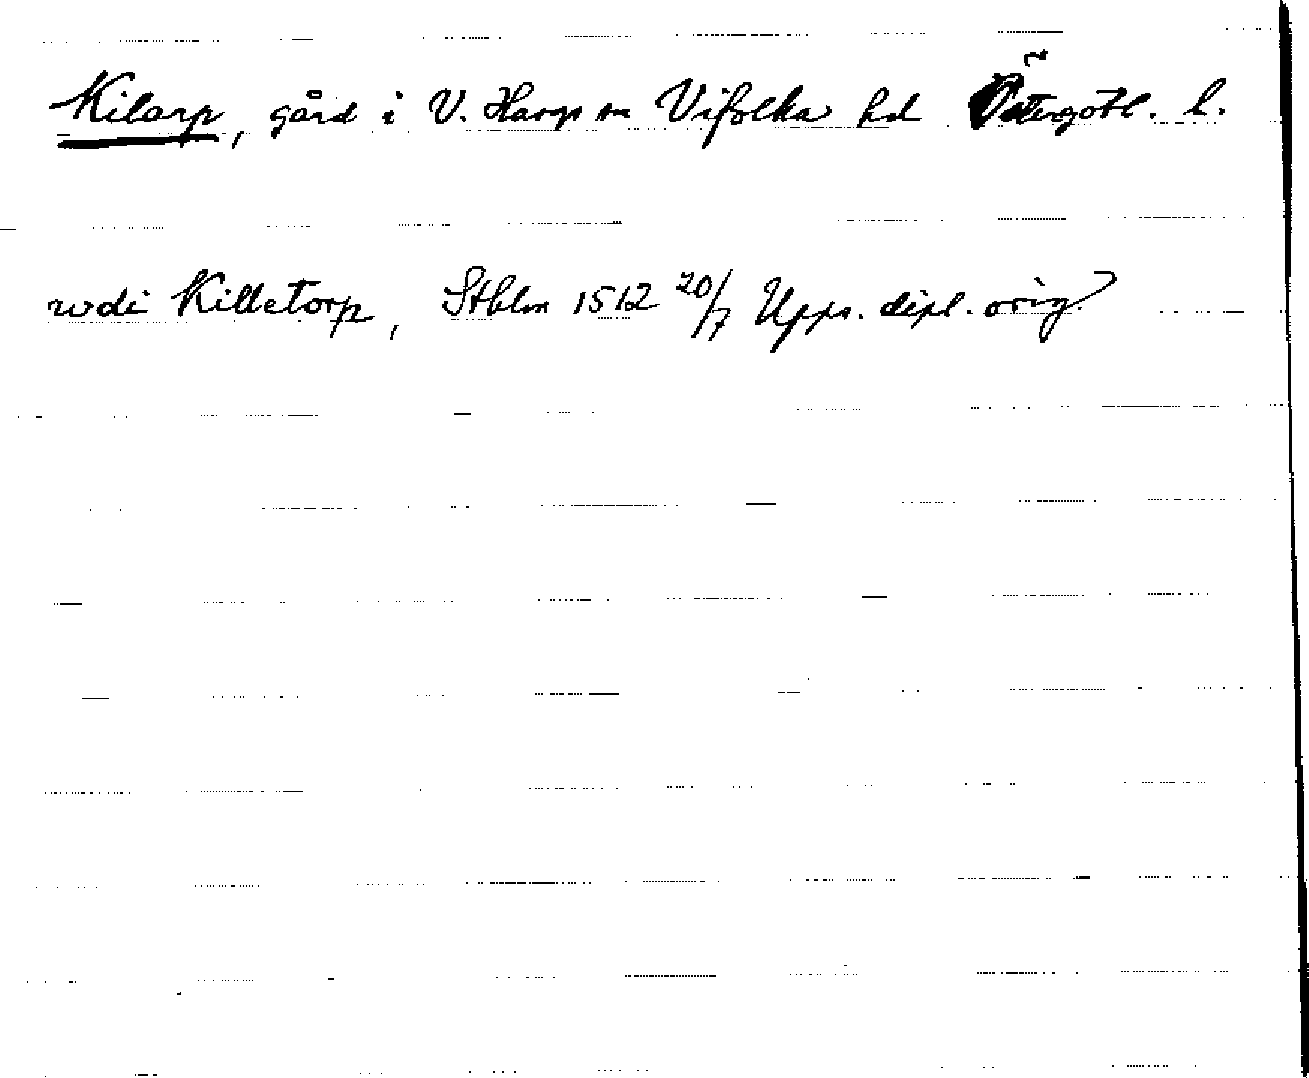 Kilarp, gård i V. Harg sn Vifolka hd Östergötl. l.
wdi Killetorp, Sthlm 1512 20/7 Upps. dipl. orig